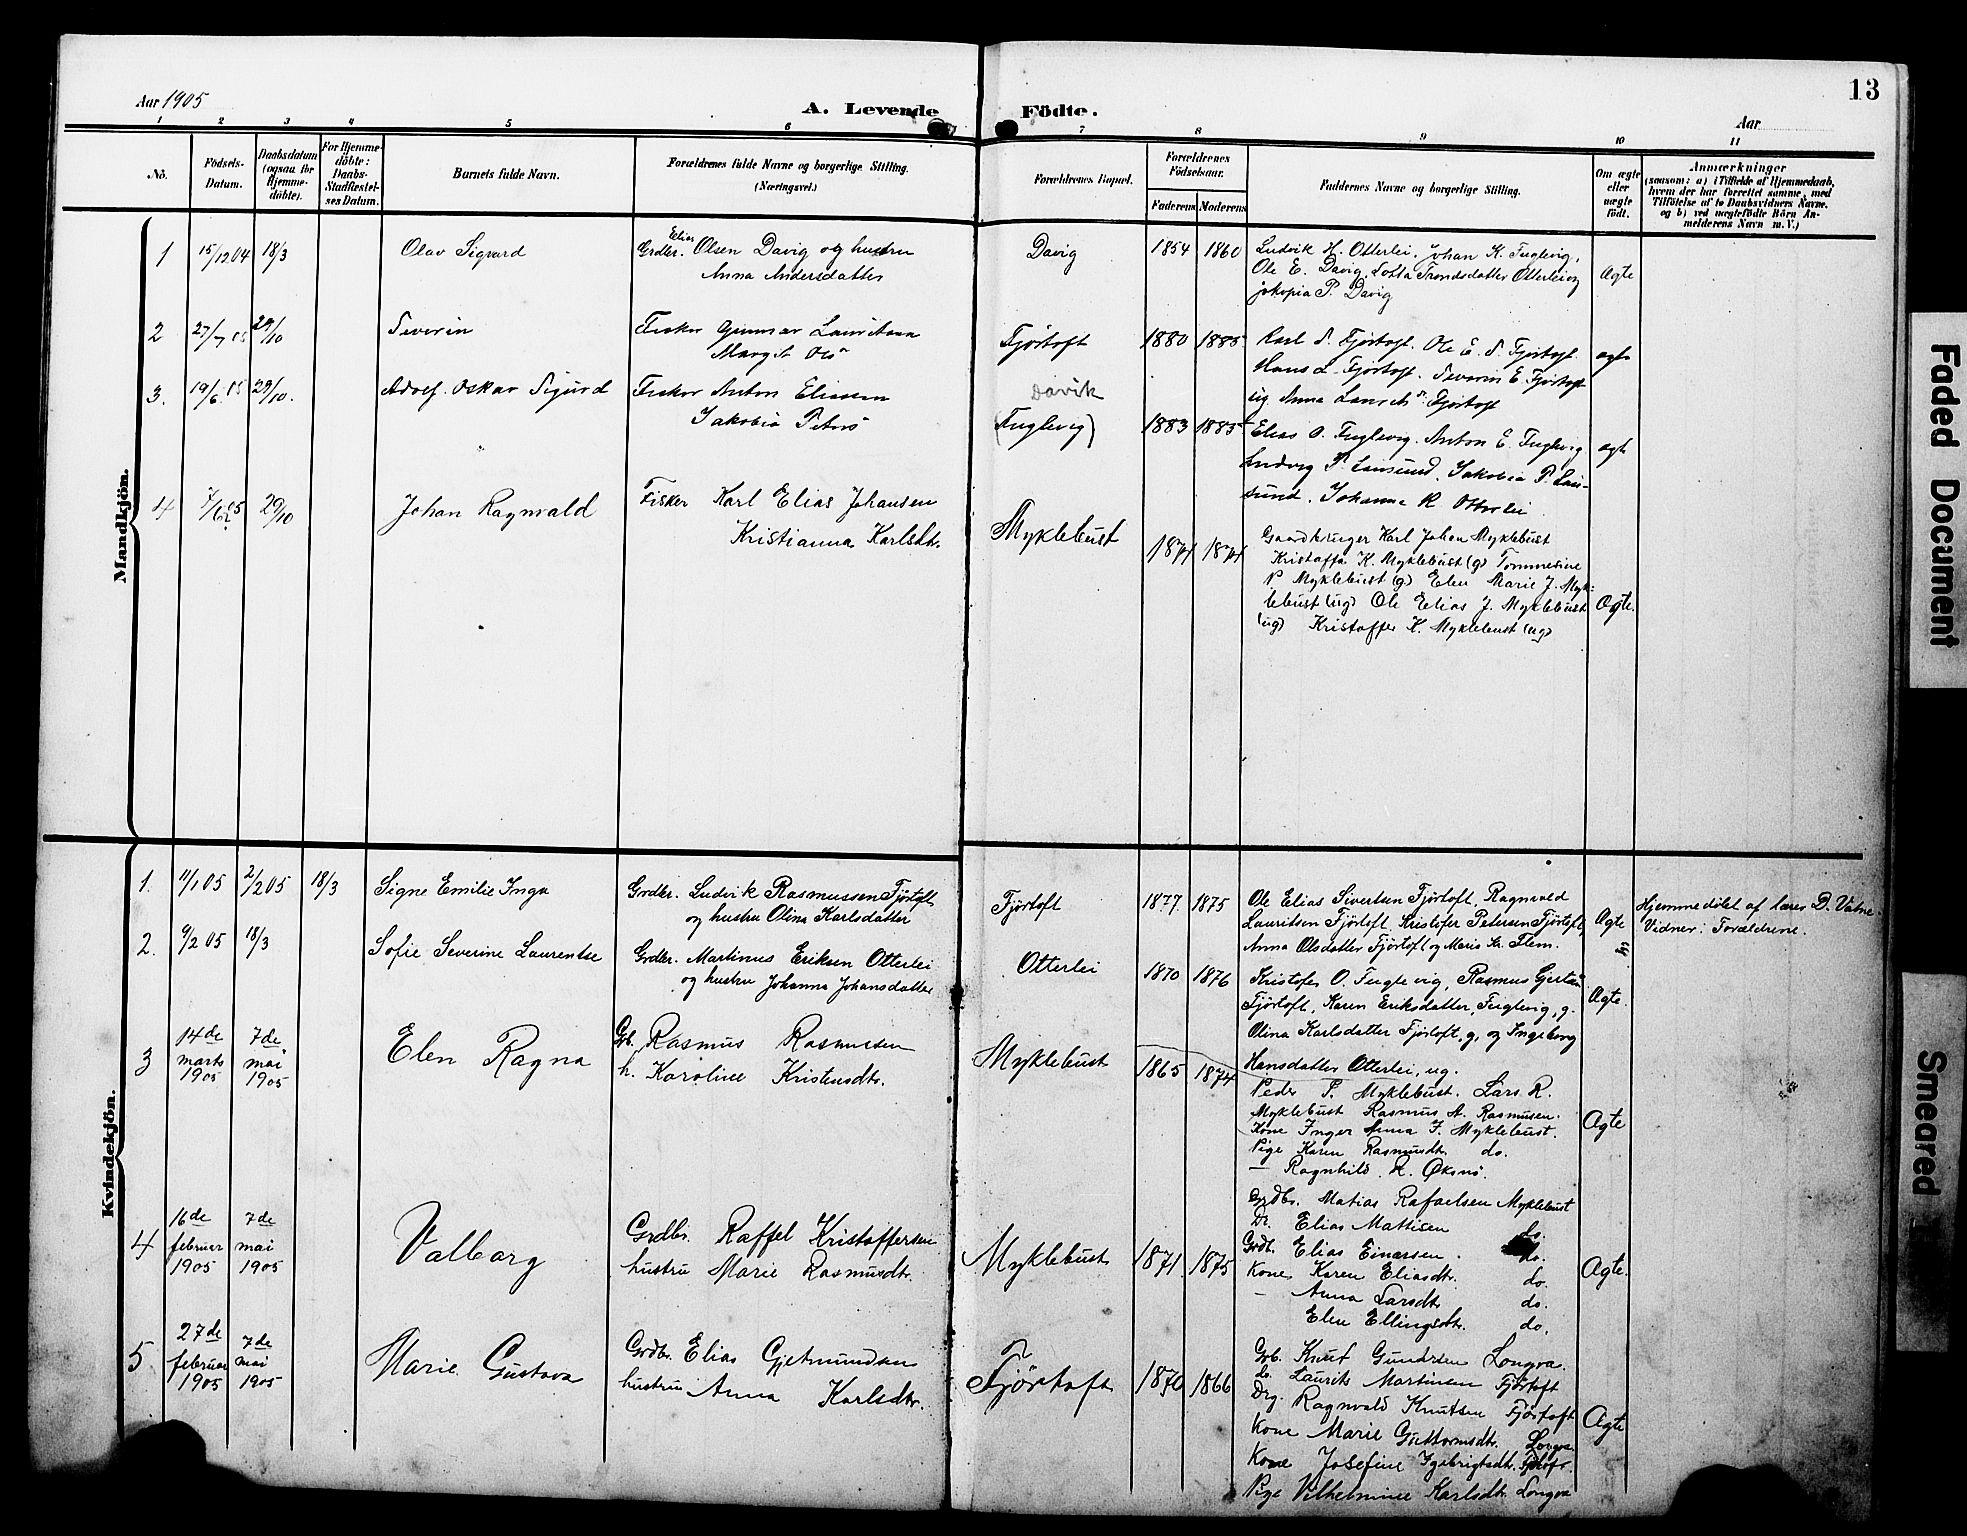 13
Aar 1905
A. Levende
Födte.
Aar
1 2 3 4 5 6 7 8 9 10 11
No.
Födsels-
Datum.
Daabsdatum
(ogsaa for
Hjemme-
döbte).
For Hjemme-
döbte:
Daabs-
Stadfæstel-
ses Datum.
Barnets fulde Navn.
Forældrenes fulde Navne og borgerlige Stilling.
(Næringsvei.)
Forældrenes Bopæl.
Forældrenes
Födselsaar.
Faderens Moderens
Faddernes Navne og borgerlige Stilling.
Om ægte
eller
uægte
födt.
Anmærkninger
(saasom: a) i Tilfælde af Hjemmedaab,
hvem der har forrettet samme, med
Tilföielse af to Daabsvidners Navne.
og b) ved uægtefödte Börn An-
melderens Navn m. V.)
Mandkjön.
1 15/12 04 18/3 Olav Sigvard
Grdbr. Elias Olsen Davig og hustru
Anna Andersdatter
Davig 1854 1860
Ludvik H. Otterlei, Johan K. Fuglevig,
Ole E. Davig, Lotta Trondsdatter Otterlei og
Jakopia P. Davig
Ægte
2 27/7 05 29/10 Severin
Fisker Gunnar
Margit Ols
Fjørtoft 1880 1885
Karl S. Fjørtoft. Ole E. S. Fjørtoft.
Hans Fjørtoft. Severin E. Fjørtoft
ug. Anna Fjørtoft
ægte
3. 19/6 05 29/10. Adolf. Oskar Sigurd
Fisker Anton Eliassen
Jakobia Peters
Davik
(Fuglevig) 1883 1885
Elias O. Fuglevig. Anton E. Fuglevig
Ludvig P. Lausund. Jakobia P. Lau-
sund. Johanna R. Otterlei
ægte
4 7/6 05 29/10 Johan Ragnvald
Fisker Karl Elias Johansen
Kristianna Karlsdtr.
Myklebust 1871 1871
Gaardbruger Karl Johan Myklebust
Kristaffa K. Myklebust (g) Tommesine
P Myklebust (g) Elen Marie J. Myk-
lebust (ug) Ole Elias J. Myklebust
(ug) Kristoffer K. Myklebust (ug)
Ægte.
Kvindekjön.
1. 11/1 05 2/2 05 18/3 Signe Emilie Inga
Grdbr. Ludvik Rasmussen Fjörtoft
og hustru Olina Karlsdatter
Fjörtoft 1877 1875
Ole Elias Sivertsen Fjörtoft, Ragnvald
Lauritsen Fjörtoft, Kristofer Petersen Fjörtoft,
Anna Olsdatter Fjörtoft og Marie Kr. Flem.
Ægte
Hjemmedöbt af lærer D. Vatne.
Vidner: Forældrene.
2. 9/2 05 18/3 Sofie Severine Laurentse
Grdbr. Martinus Eriksen Otterlei
og hustru Johanna Johansdatter
Otterlei 1870 1876
Kristofer O. Fuglevig, Rasmus
Fjörtoft, Karen Eriksdatter, Fuglevig, g.
Olina Karlsdatter Fjörtoft, g, og Ingeborg
Hansdatter Otterlei, ug.
Ægte.
3 14de
marts
1905
7de
mai
1905
Elen Ragna
Grb. Rasmus Rasmusen
h. Karoline Kristensdtr.
Myklebust 1865 1874
Peder P. Myklebust. Lars R.
Myklebust Rasmus A. Rasmusen.
Kone Inger Anna J. Myklebust.
Pige Karen Rasmusdt. do.
— Ragnhild R. Øksnö.
Ægte
4 16de
februar
1905
7de
mai
1905
Valborg
Grdbr. Raffel Kristoffersen
hustru Marie Rasmusdtr.
Myklebust 1871 1875
Grdbr. Matias Rafaelsen Myklebust
Dr. Elias Mattisen do.
Grdb. Elias Einarsen. do.
Kone Karen Eliasdtr. do.
— Anna Larsdtr do.
Elen Ellingsdtr. do.
Ægte.
5 27de
februar
1905
7de
mai
1905
Marie Gustava
Grdbr. Elias Gjetmundsen
hustru Anna Karlsdtr.
Fjørtoft 1870 1866
Grb. Knut Gundersen Longva.
Laurits Martinsen Fjørtoft
Drg. Ragnvald Knutsen Fjørtoft
Kone Marie Guttormsdtr. Longva
Kone Josefine Fjørtoft.
Pige Vilhelmine Karlsdtr. Longva
Ægte
Faded Document
Smeared